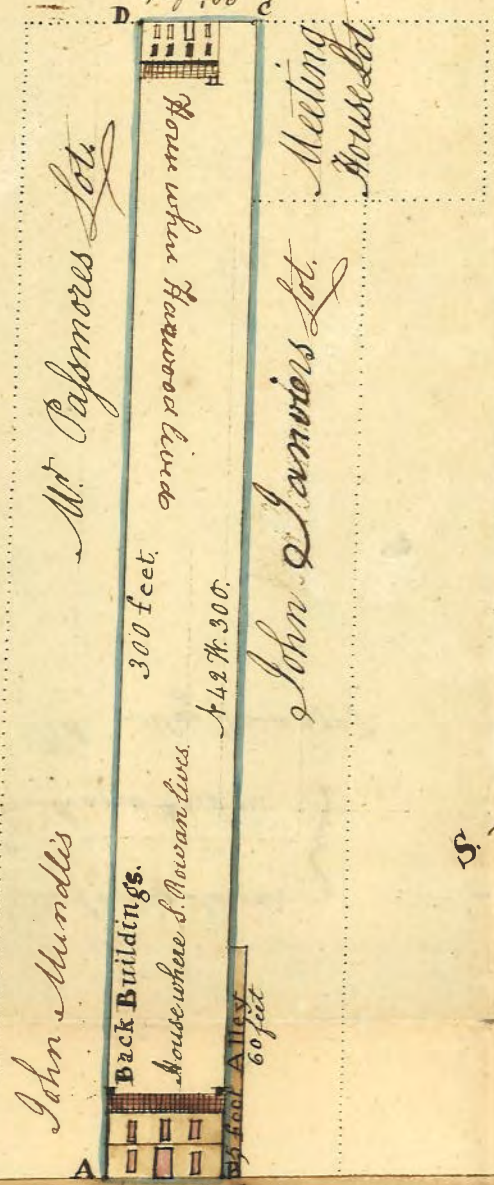 D
C
H
Meeting
House Lot
Mr. Passmores Lot.
House where Harwood lives
John Janviers Lot.
300 feet.
N 42 W. 300.
John Mundlis
Back Buildings.
House where S. Rowan lives.
Alley
60 feet
feet
S.
A
B